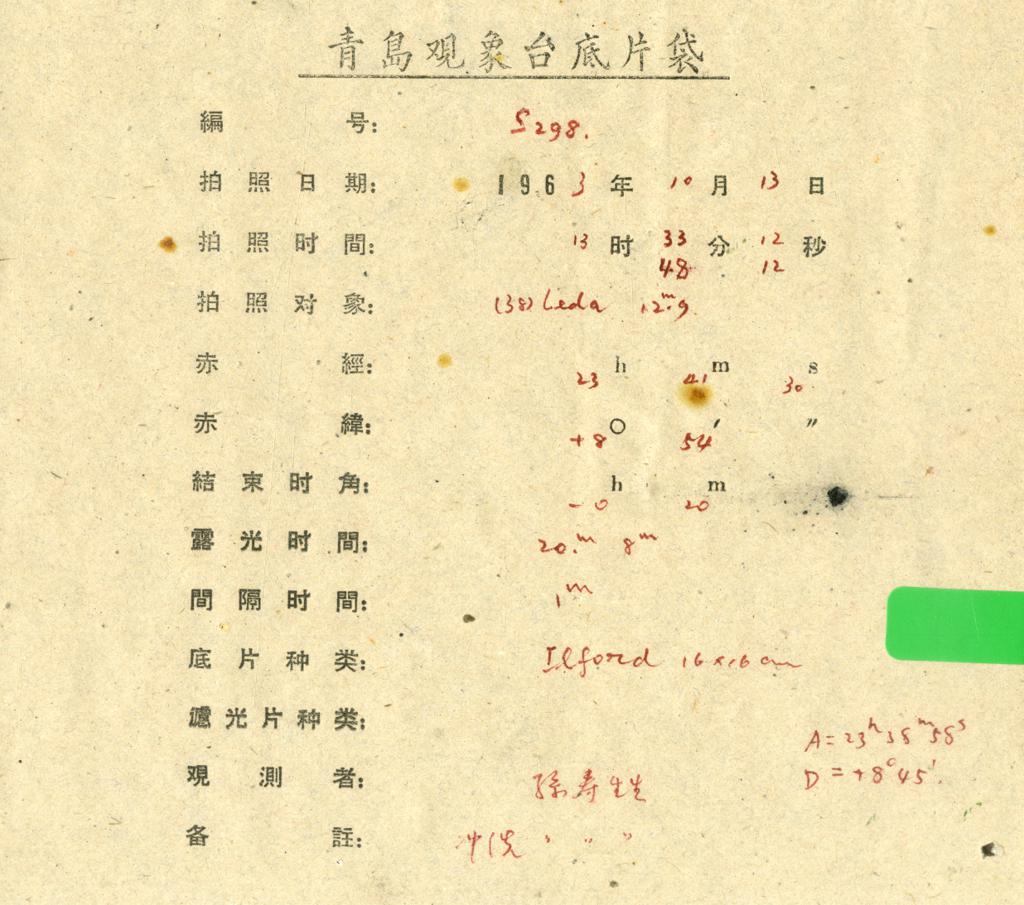 青島观象台底片袋
編号: S298.
拍照日期: 1963年10月13日
拍照时間: 13时33分12秒
48 12
拍照对象: (38) Leda 12.ᵐ9
赤經: 23h 41m 30s
赤緯: +8° 54′ ″
結束时角: -0h 20m
露光时間: 20.ᵐ 8ᵐ
間隔时間: 1ᵐ
底片种类: Ilford 16x16cm
濾光片种类:
A=23ʰ38ᵐ58ˢ
观測者: 孫寿
D=+8°45′
备註: 冲洗 〃 〃 〃